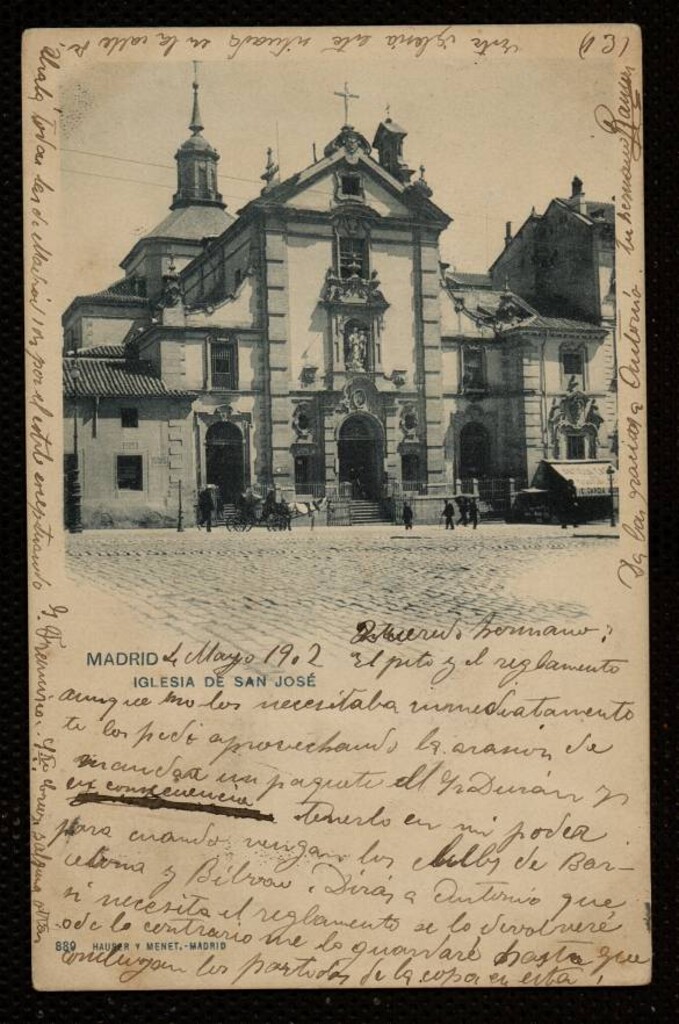 (3)
MADRID 4 Mayo 1902
IGLESIA DE SAN JOSÉ
Querido hermano:
El pito y el reglamento
aunque no los necesitaba inmediatamente
te los pedí aprovechando la de
mandar un paquete el Sr Durán y
en consecuencia tenerlo en mi poder
para cuando vengan los clubs de Bar-
celona y Bilbao. Dirás a Antonio que
si necesita el reglamento se lo devolveré
de lo contrario me lo guardaré hasta que
concluyan los partidos de la copa en esta.
880 HAUSER Y MENET.-MADRID
Da las gracias a Antonio. tu hermano Ramón
Esta iglesia está situada en la calle de
Alcalá, todas las de Madrid son por el estilo exceptuando
S. Francisco. y alguna otra